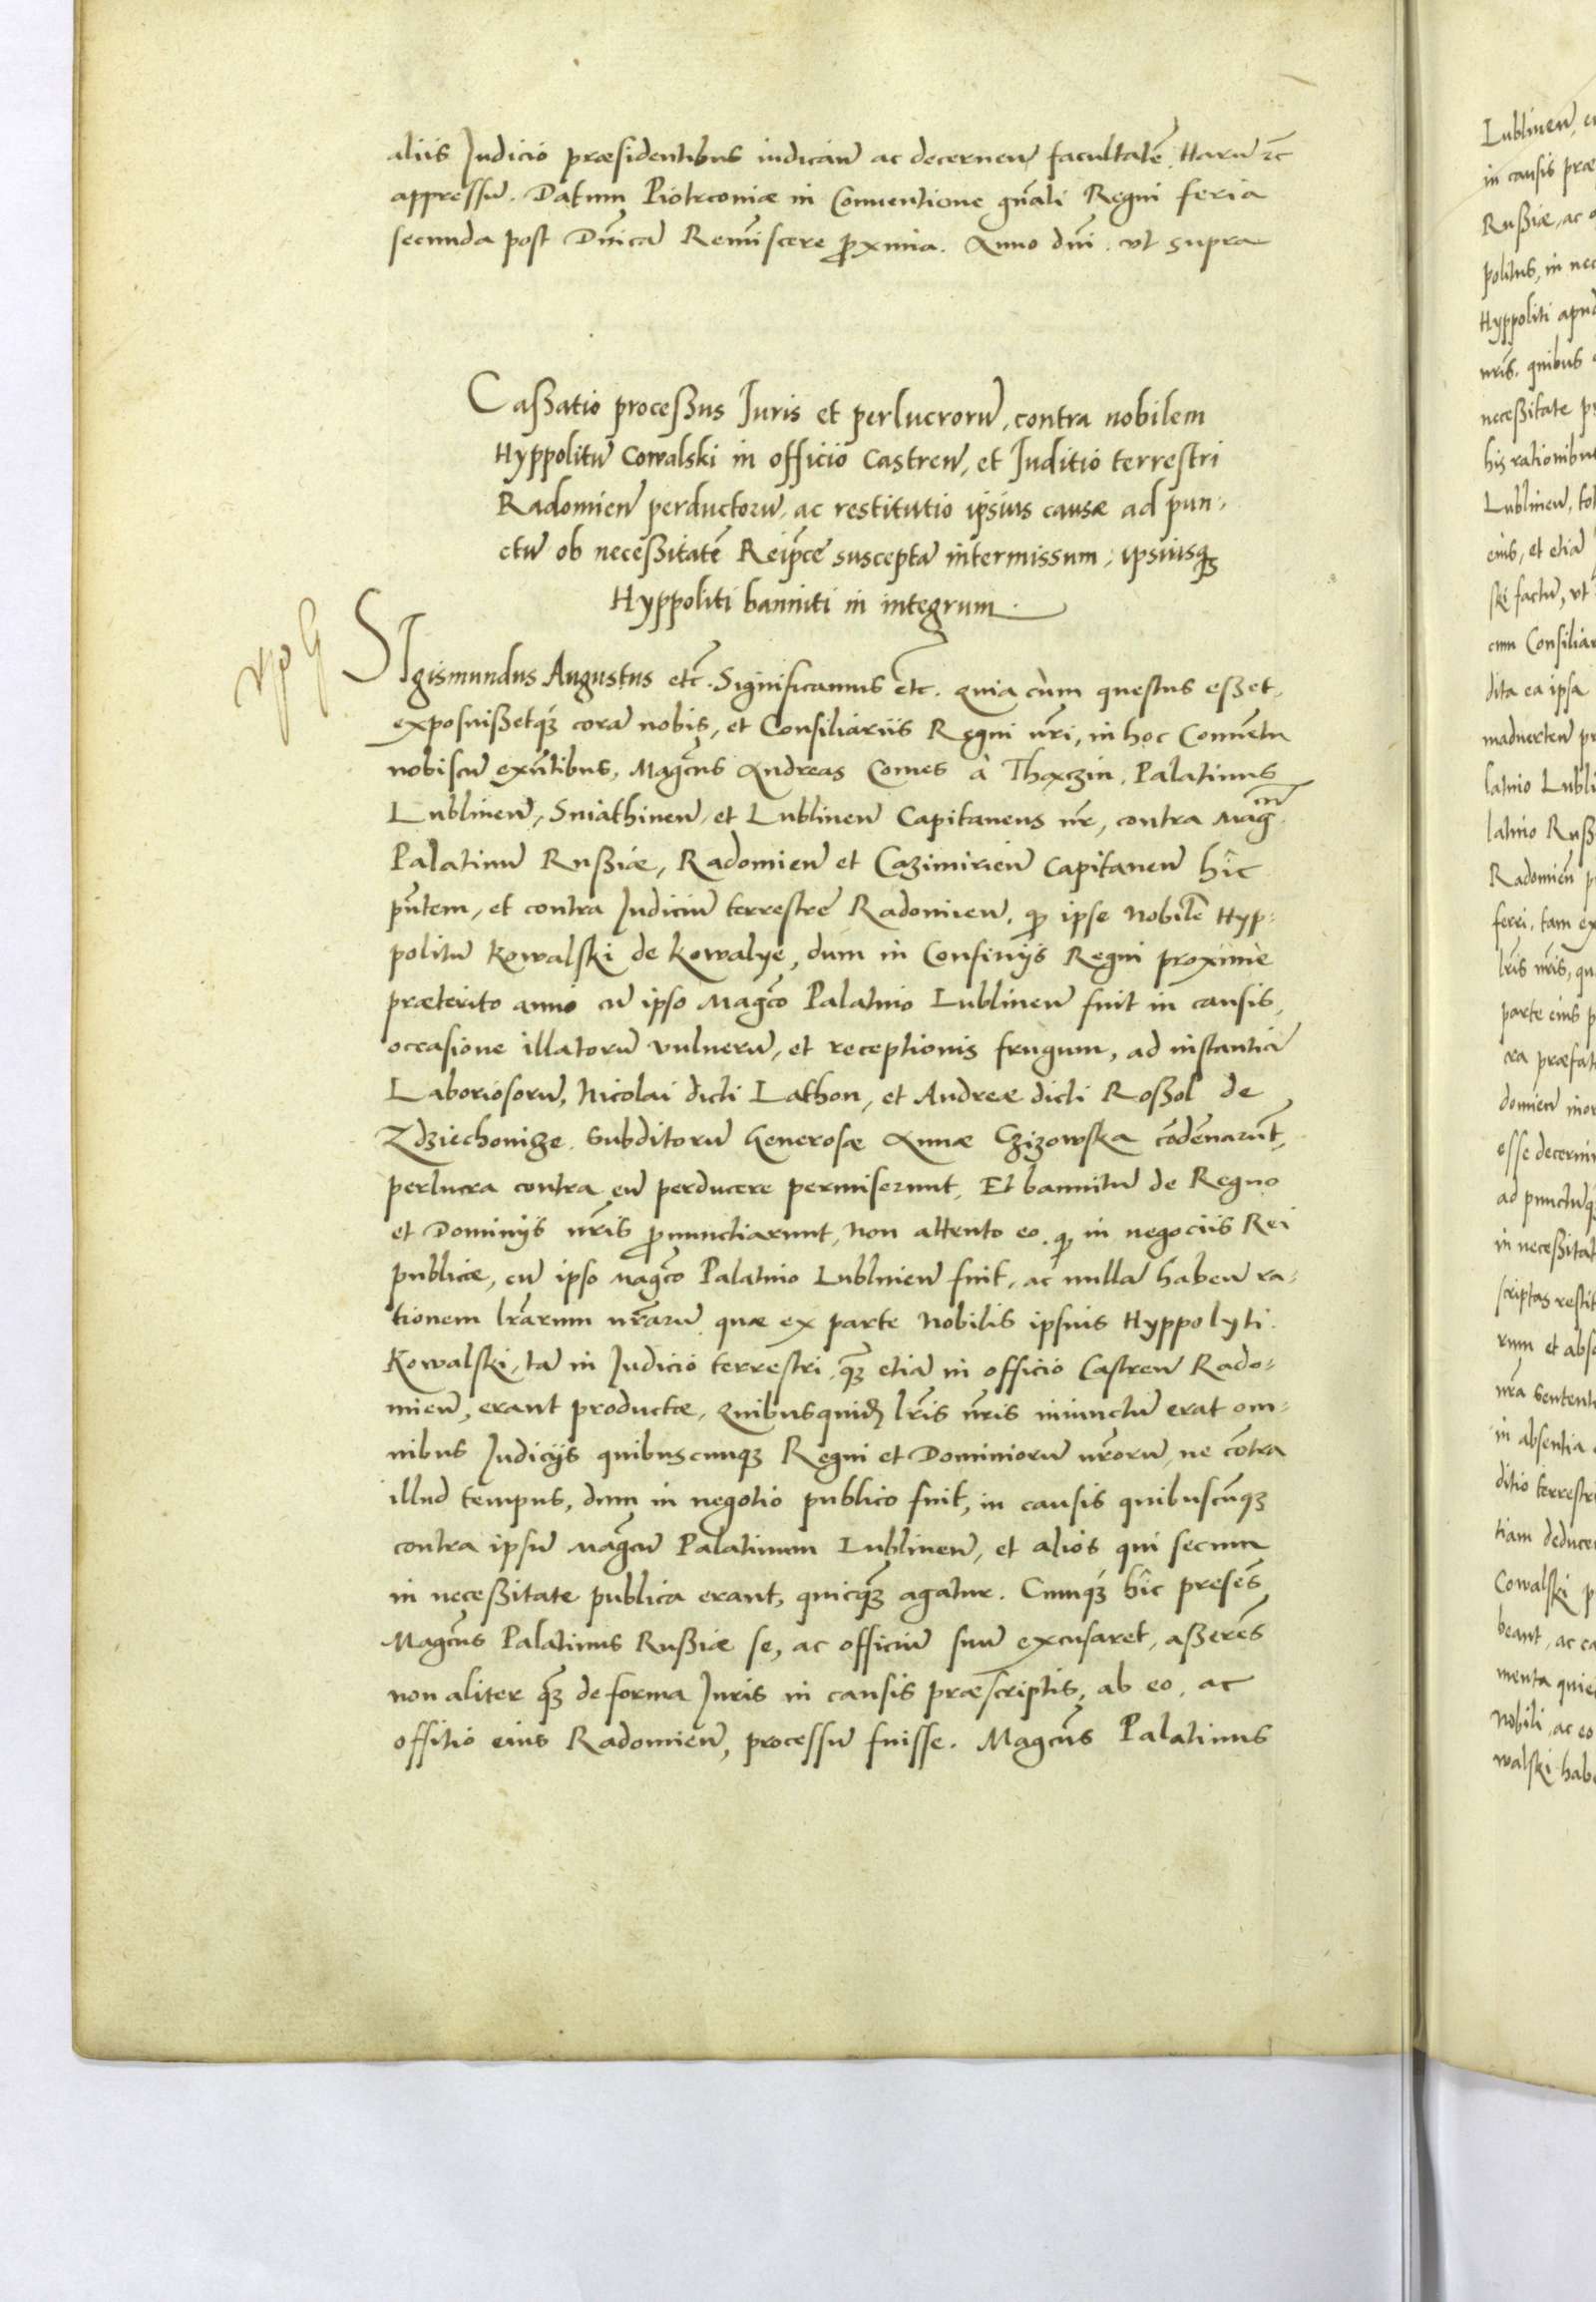 aliis Judicio præsidentibus iudicañ ac decerneñ facultatē. Harū ꝛc
appressū. Datum Piotrconiæ in Conuentione gñali Regni feria
secunda post Dñicā Remiscere ꝓxima. Anno dñi. vt supra
Caßatio proceßus Juris et perlucrorū, contra nobilem
Hyppolitū Cowalski in officio Castreñ, et Juditio terrestri
Radomieñ perductorū, ac restitutio ipsius causæ ad pun-
ctū ob neceßitatē Reipcę susceptā intermissum, ipsiusqꝫ
Hyppoliti banniti in integrum.
SIgismundus Augustus etc̄. Significamus etc. Quia cùm questus eßet,
exposuißetqꝫ corā nobis, et Consiliariis Regni nr̄i, in hoc Conuētu
nobiscū exñtibus, Magc̄us Andreas Comes à Thaxczin, Palatinus
Lublineñ, Sniathineñ, et Lublineñ Capitaneus nr̄, contra Mag̃cū
Palatinū Rußiæ, Radomieñ et Cazimirieñ Capitaneū hîc
pñtem, et contra Judiciū terrestre Radomieñ, ꝙ ipse Nobilē Hyp-
politū Kowalski de Kowalye, dum in Confinijs Regni proximè
præterito anno cū ipso Magc̄o Palatino Lublineñ fuit in causis,
occasione illatorū vulnerū, et receptionis frugum, ad instantiā
Laboriosorū, Nicolai dicti Lathon, et Andreæ dicti Roßol de
Zdziechonize. Subditorū Generosæ Annæ Czizowska cōdēnarūt,
perlucra contra eū perducere permiserunt, Et bannitū de Regno
et Dominijs nr̄is ꝓnunctiarunt, non attento eo, ꝙ in negociis Rei
publicæ, cū ipso Magc̄o Palatino Lublineñ fuit, ac nullā habeñ ra-
tionem lr̄arum nr̄arū quæ ex parte Nobilis ipsius Hyppolyti
Kowalski, tā in Judicio terrestri, qꝫ etiā in officio Castreñ Rado-
mieñ, erant productæ, Quibusquidē lr̄is nr̄is iniunctū erat om-
nibus Judicijs quibuscunqꝫ Regni et Dominiorū nr̄orū, ne cōtra
illud tempus, dum in negotio publico fuit, in causis quibuscūqꝫ
contra ipsū Magc̄ū Palatinum Lublineñ, et alios qui secum
in neceßitate publica erant, quicqꝫ agatur. Cumqꝫ hîc presēs
Magc̄us Palatinus Rußiæ se, ac officiū suū excusaret, aßerēs
non aliter qꝫ de forma Juris in causis præscriptis, ab eo, ac
offitio eius Radomieñ, processū fuisse. Magc̄us Palatinus
Lublineñ,
in causis præ
Rußiæ, ac
politus, in nec
Hyppoliti apud
nr̄is. quibus
neceßitate
his rationibus
Lublineñ,
eius, et etiā
ski factū, vt
cum Consiliar
dita ea ipsa
maduerteñ
latino Lubli
latino Ruß
Radomieñ
ferri, tam ex
lr̄is nr̄is, qu
parte eius
domieñ
esse decerni
ad punctū
in neceßitat
scriptas restit
rum et abs
nr̄a Sententi
in absentia
ditio terrestri
tiam deduce
Cowalski
beant, ac ca
menta quie
Nobili, ac eo
walski habe